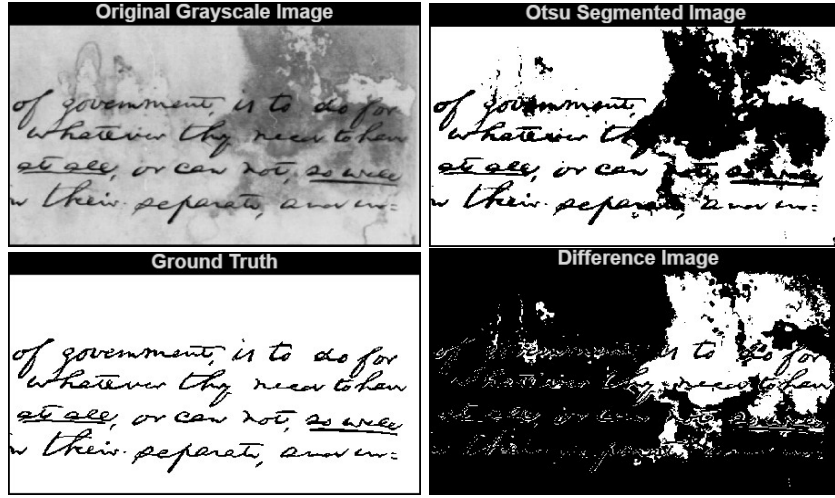 Original Grayscale Image
of government, is to do for
whatever they need to have
at all, or can not, so well
their separate, and in=
Otsu Segmented Image
of government,
whatever
at all, or can not, so well
their separate, and in=
Ground Truth
of government, is to do for
whatever they need to have
at all, or can not, so well
their separate, and in=
Difference Image
of government, is to do for
whatever they need to have
at all, or can
their separate